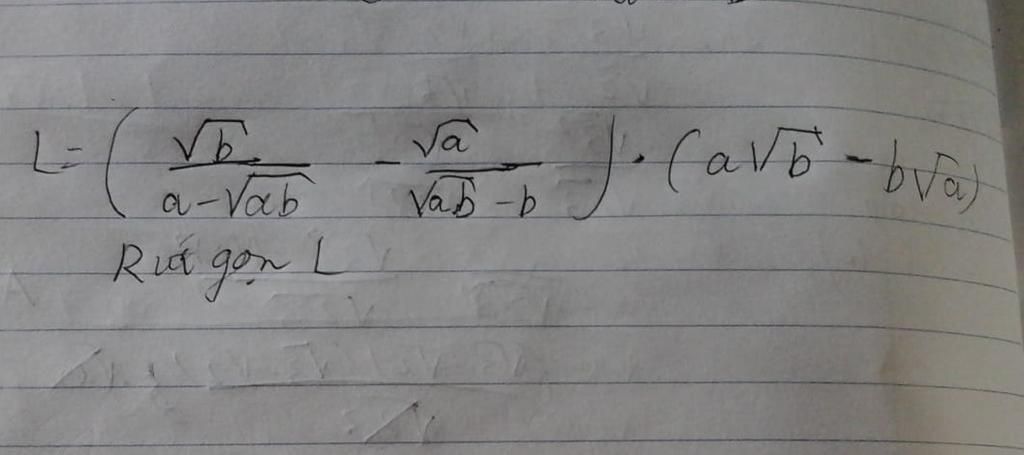 L = ( √b / (a - √ab) - √a / (√ab - b) ) . (a√b - b√a)
Rút gọn L